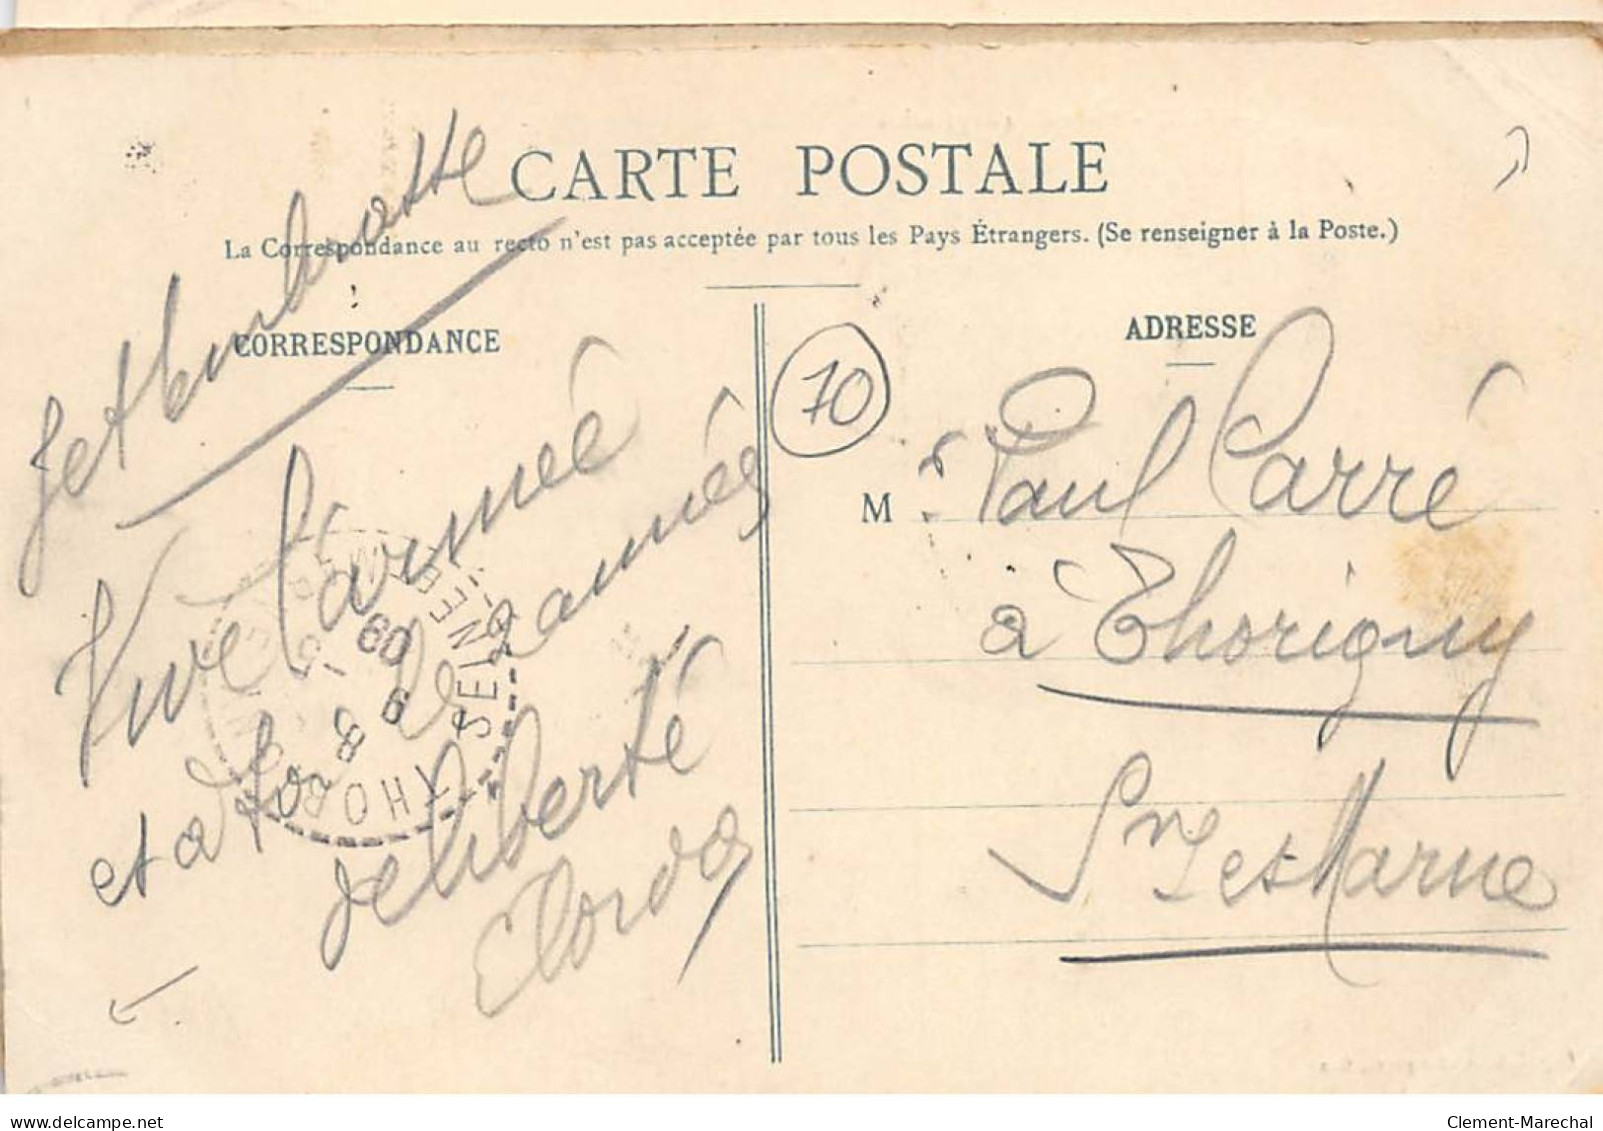 CARTE POSTALE
La Correspondance au recto n'est pas acceptée par tous les Pays Étrangers. (Se renseigner à la Poste.)
CORRESPONDANCE
Je t'embrasse
Vive l'armée
et
de liberté
10
ADRESSE
M Paul Carré
à Thorigny
Sne et Marne
THORIGNY
SEINE ET
8
6
09
delcampe.net
Clement-Marechal